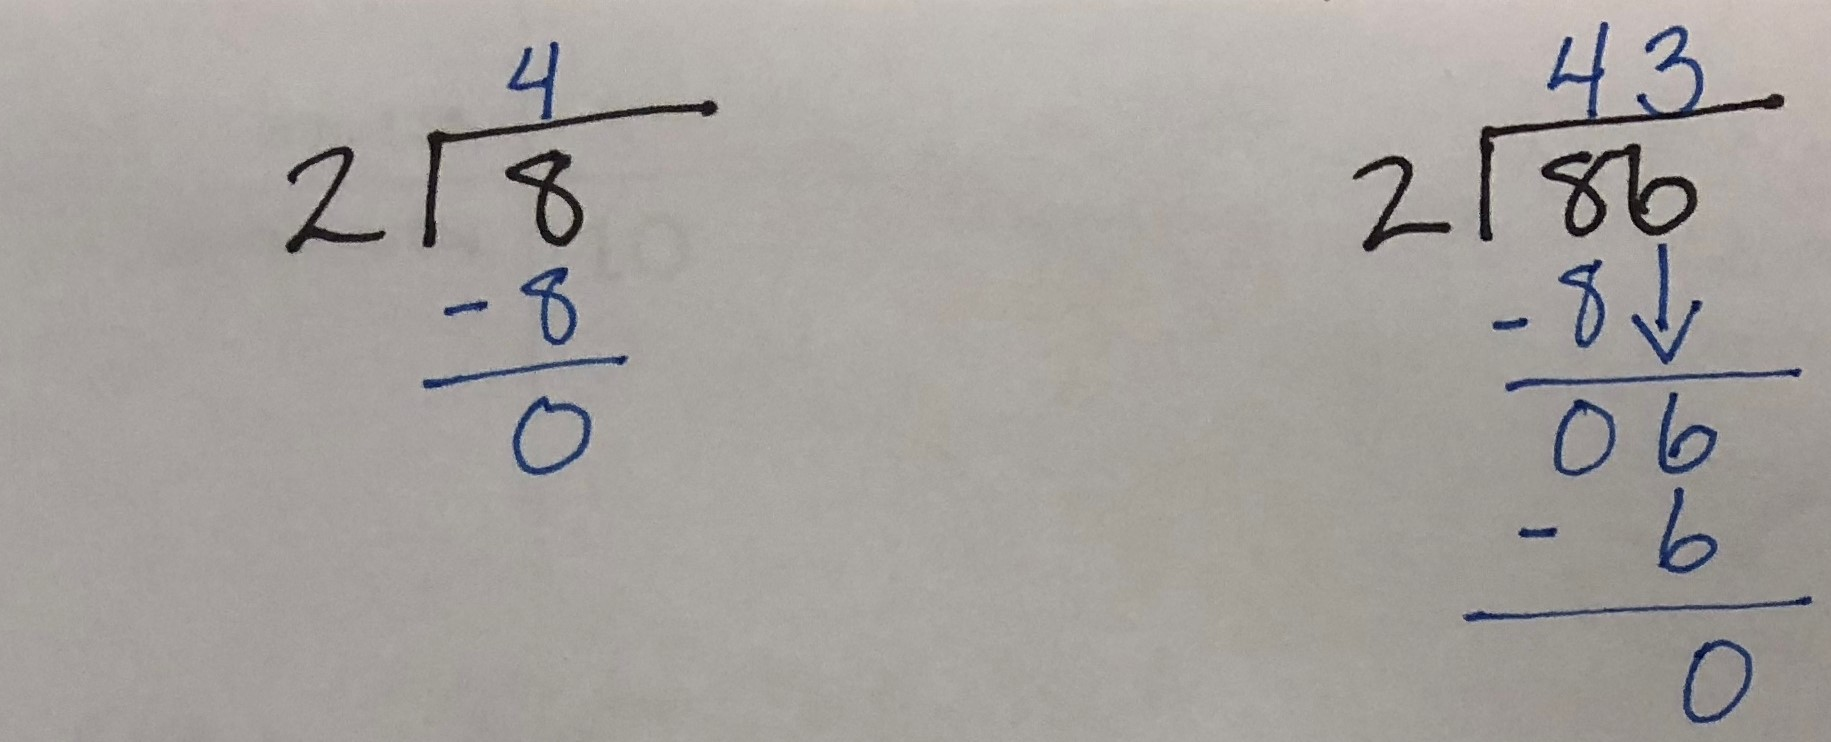 4
2 8
- 8
0
43
2 86
- 8
06
- 6
0